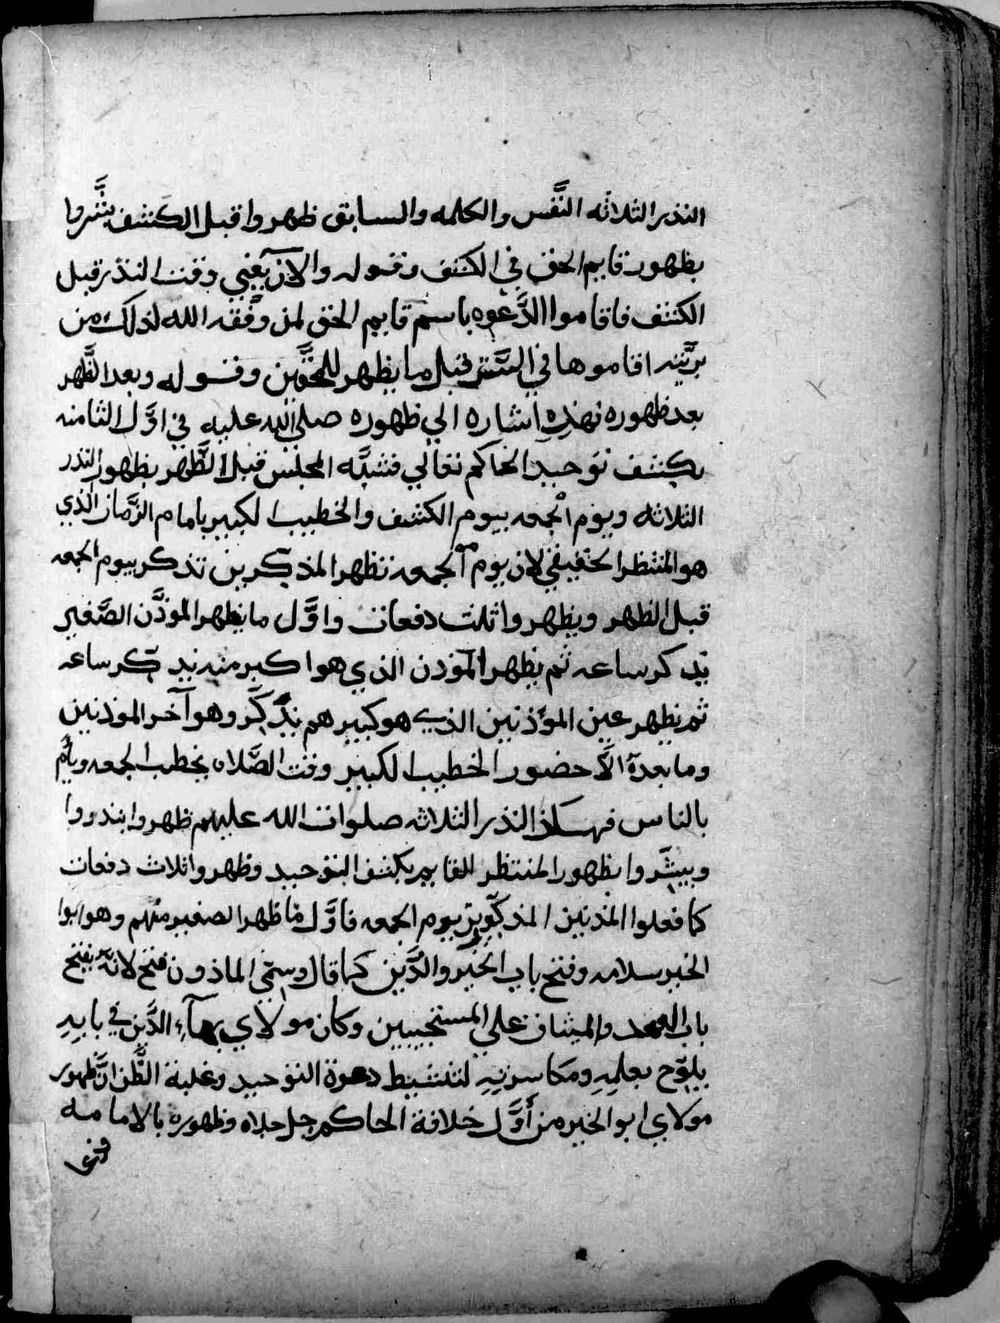 النذر الثلاثه النَّفس والكلمه والسابق ظهروا قبل الكشف بشَّروا
بظهور قايم الحق في الكشف وقوله والآن يَعْني وقت النذر قبل
الكشف فاقاموا الدَّعوه باسم قايم الحق لمن وفَّقه الله لذلك من
بريَّته اقاموها في السَّتر قبل ما يظهر للمحقَّين وقوله وبعد الظَّهر
بعد ظهوره فهذه اشاره الي ظهوره صلي الله عليه في اوَّل الثامنه
بكشف توحيد الحاكم تعالي فشبَّه المجلس قبل الظَّهر بظهور النذر
الثلاثه ويوم الجمعه بيوم الكشف والخطيب الكبير بامام الزَّمان الذي
هو المنتظر الحقيقي لان يوم الجمعه تظهر المذكّرين تذكر بيوم الجمعه
قبل الظهر ويظهروا ثلث دفعات واوَّل ما يظهر المؤذَّن الصَّغير
يذكر ساعه ثم يظهر المؤذن الذي هو اكبر منه يذكّر ساعه
ثم يظهر عين المؤذنين الذي هو كبيرهم يذكِّر وهو آخر الموذنين
وما بعده الَّا حضور الخطيب الكبير وقت الصَّلاه يخطب الجمعه ويأتم
بالناس فهكذا النذر الثلاثه صلوات الله عليهم ظهروا بندروا
ويبشّروا بظهور المنتظر القايم بكشف التوحيد وظهروا ثلاث دفعات
كما فعلوا المذنين المذكّرين يوم الجمعه فاوَّل ما ظهر الصغير منهم وهو ابوا
الخير سلامه وفتح باب الخير والدِّين كما قال وسمّي الماذون فتح لانَّه يفتح
باب العهد والميثاق علي المستجيبين وكان مولاي بهآء الدَّين في بابه
يلوّح بعلمه ومكاسرته لتنشيط دعوة التوحيد وغلبة الظَّن ان ظهور
مولاي ابو الخير من أوَّل خلافة الحاكم جل جلاه وظهوره بالامامه